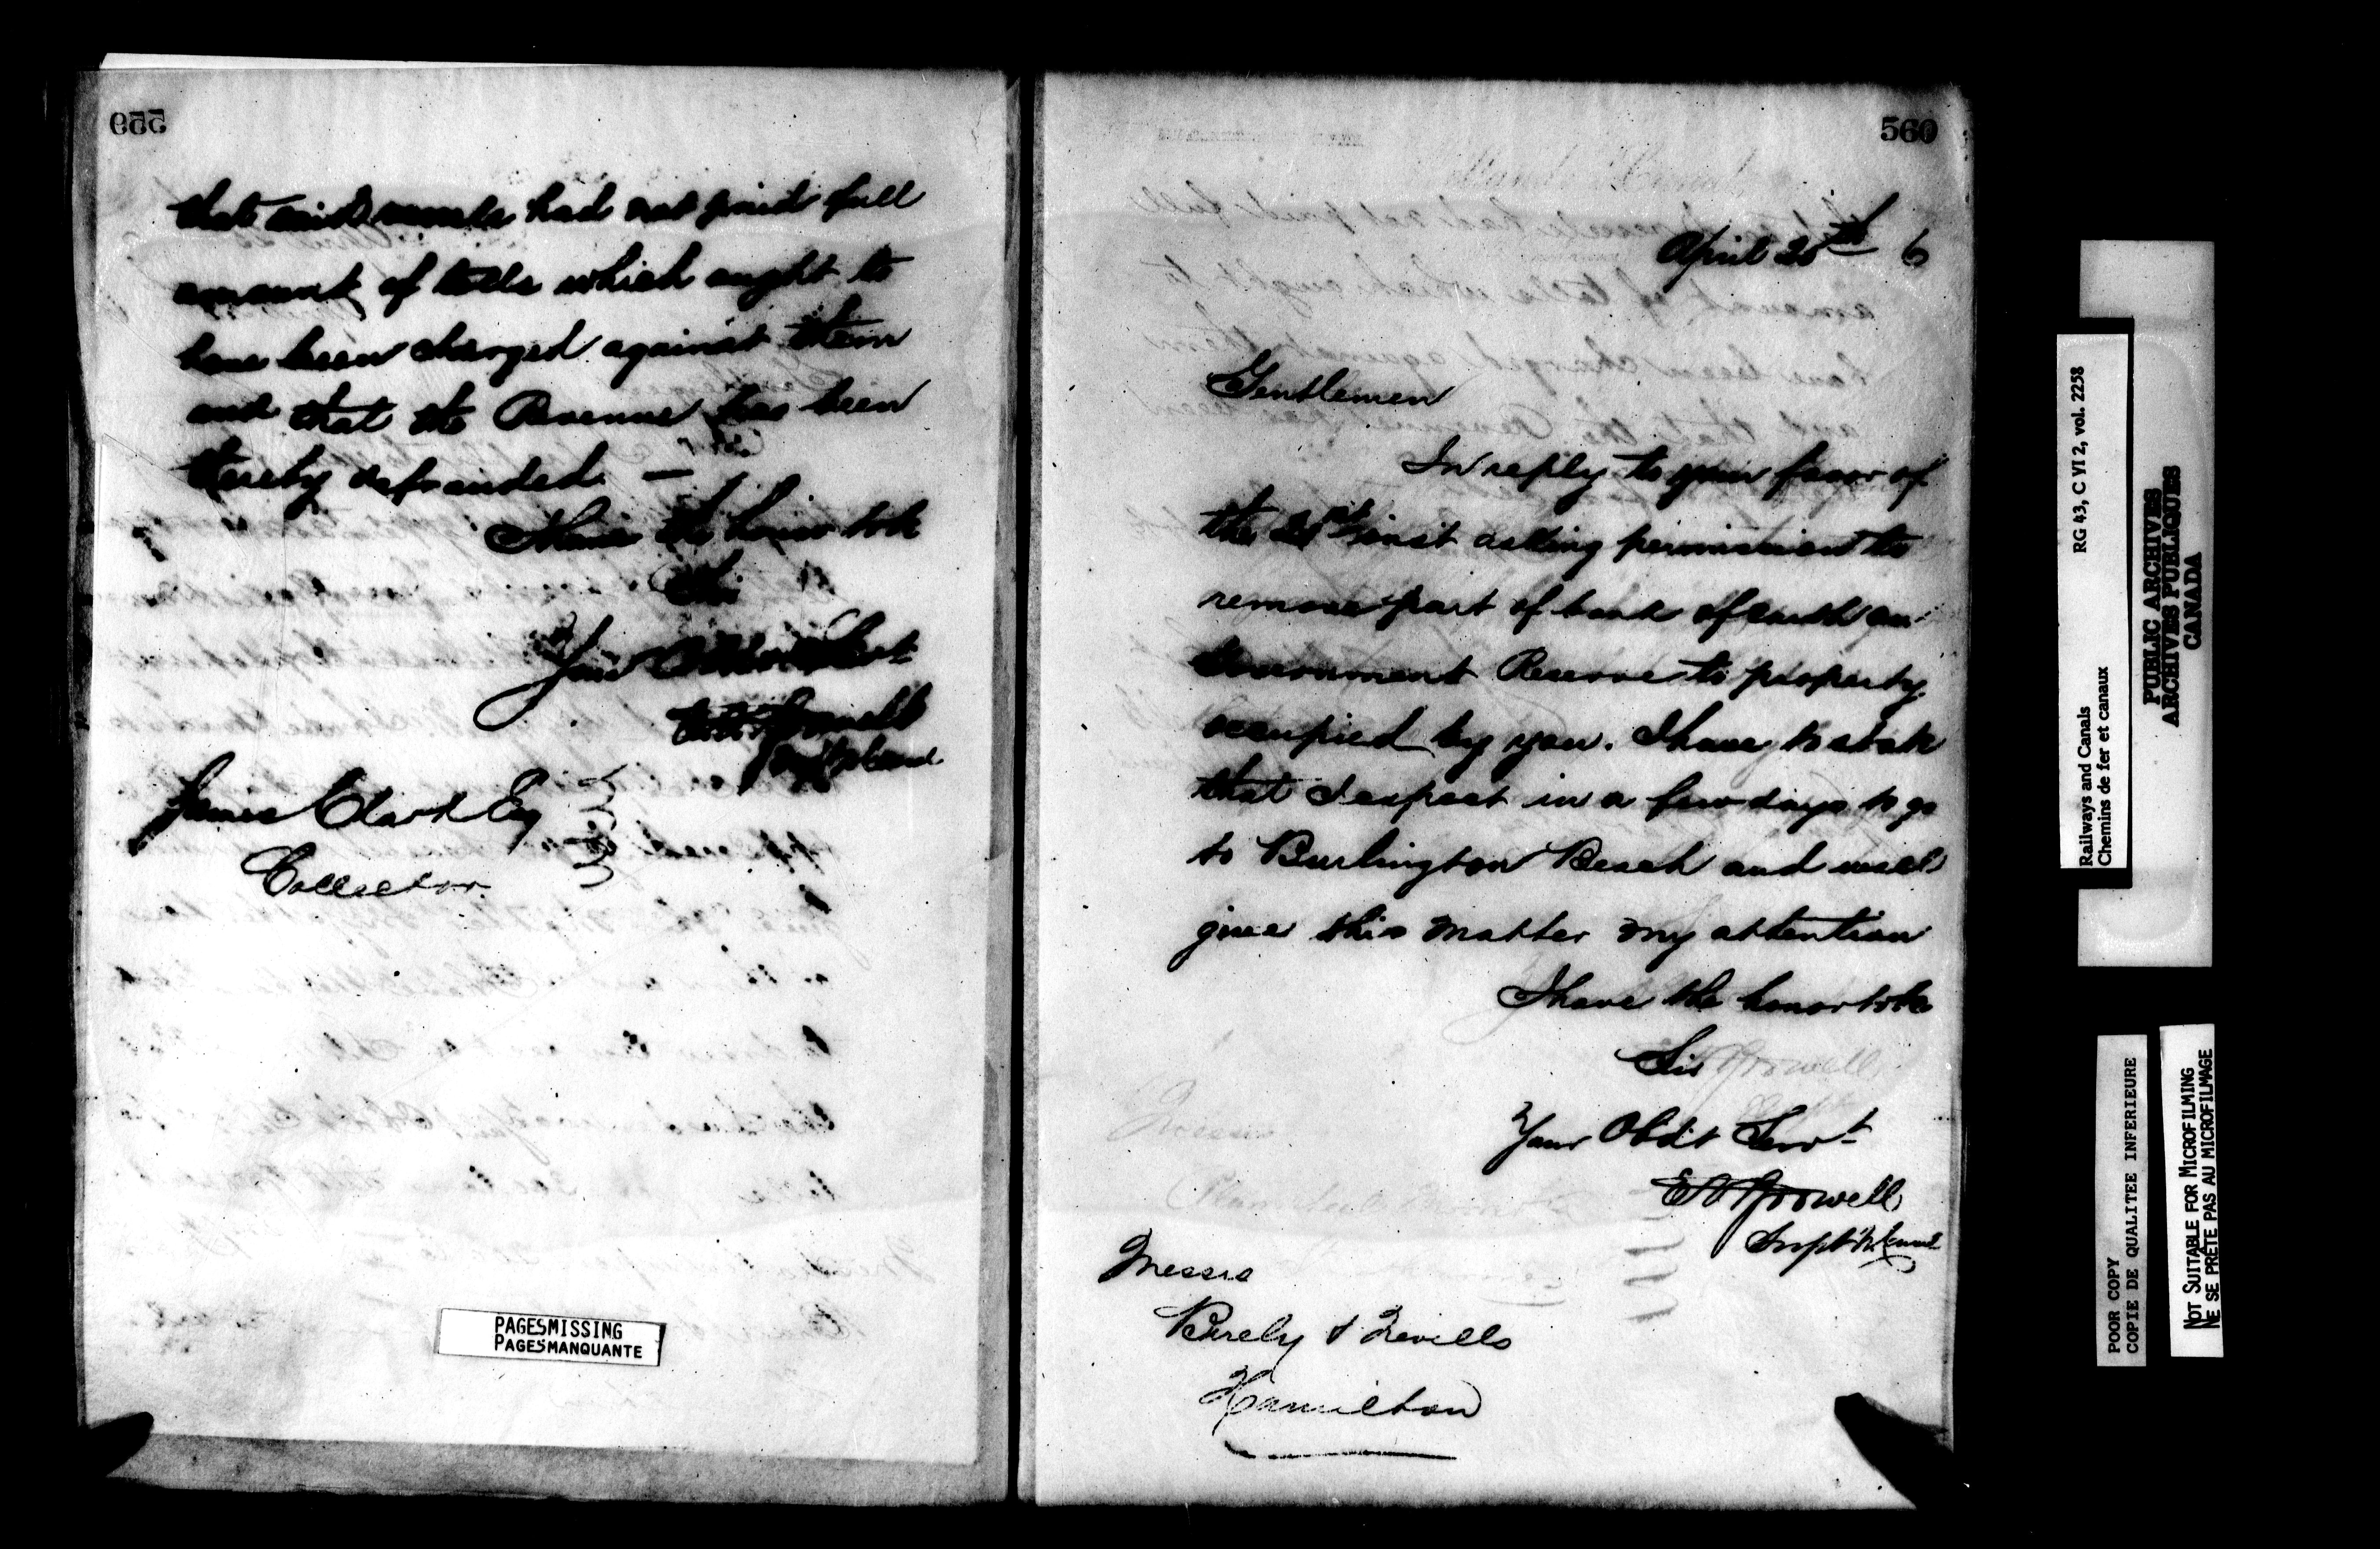 559
that said vessels had not paid full
amount of tolls which ought to
have been charged against them
and that the Revenue has been
thereby defrauded. —
I have the honor to be
Sir
Your Obdt Servt
Supt W Canal
James Clark Esq
Collector
PAGES MISSING
PAGES MANQUANTE
560
April 26th 6
Gentlemen
In reply to your favor of
the 21st inst asking permission to
remove part of bank of earth on
Government Reserve to property
occupied by you. I have to state
that I expect in a few days to go
to Burlington Beach and will
give this matter my attention
I have the honor to be
Sir
Your Obdt Servt
Supt W. Canal
Messrs
Birely & Nevills
Hamilton
Railways and Canals RG 43, C VI 2, vol. 2258
Chemins de fer et canaux
PUBLIC ARCHIVES
ARCHIVES PUBLIQUES
CANADA
POOR COPY
COPIE DE QUALITEE INFERIEURE
NOT SUITABLE FOR MICROFILMING
NE SE PRÊTE PAS AU MICROFILMAGE